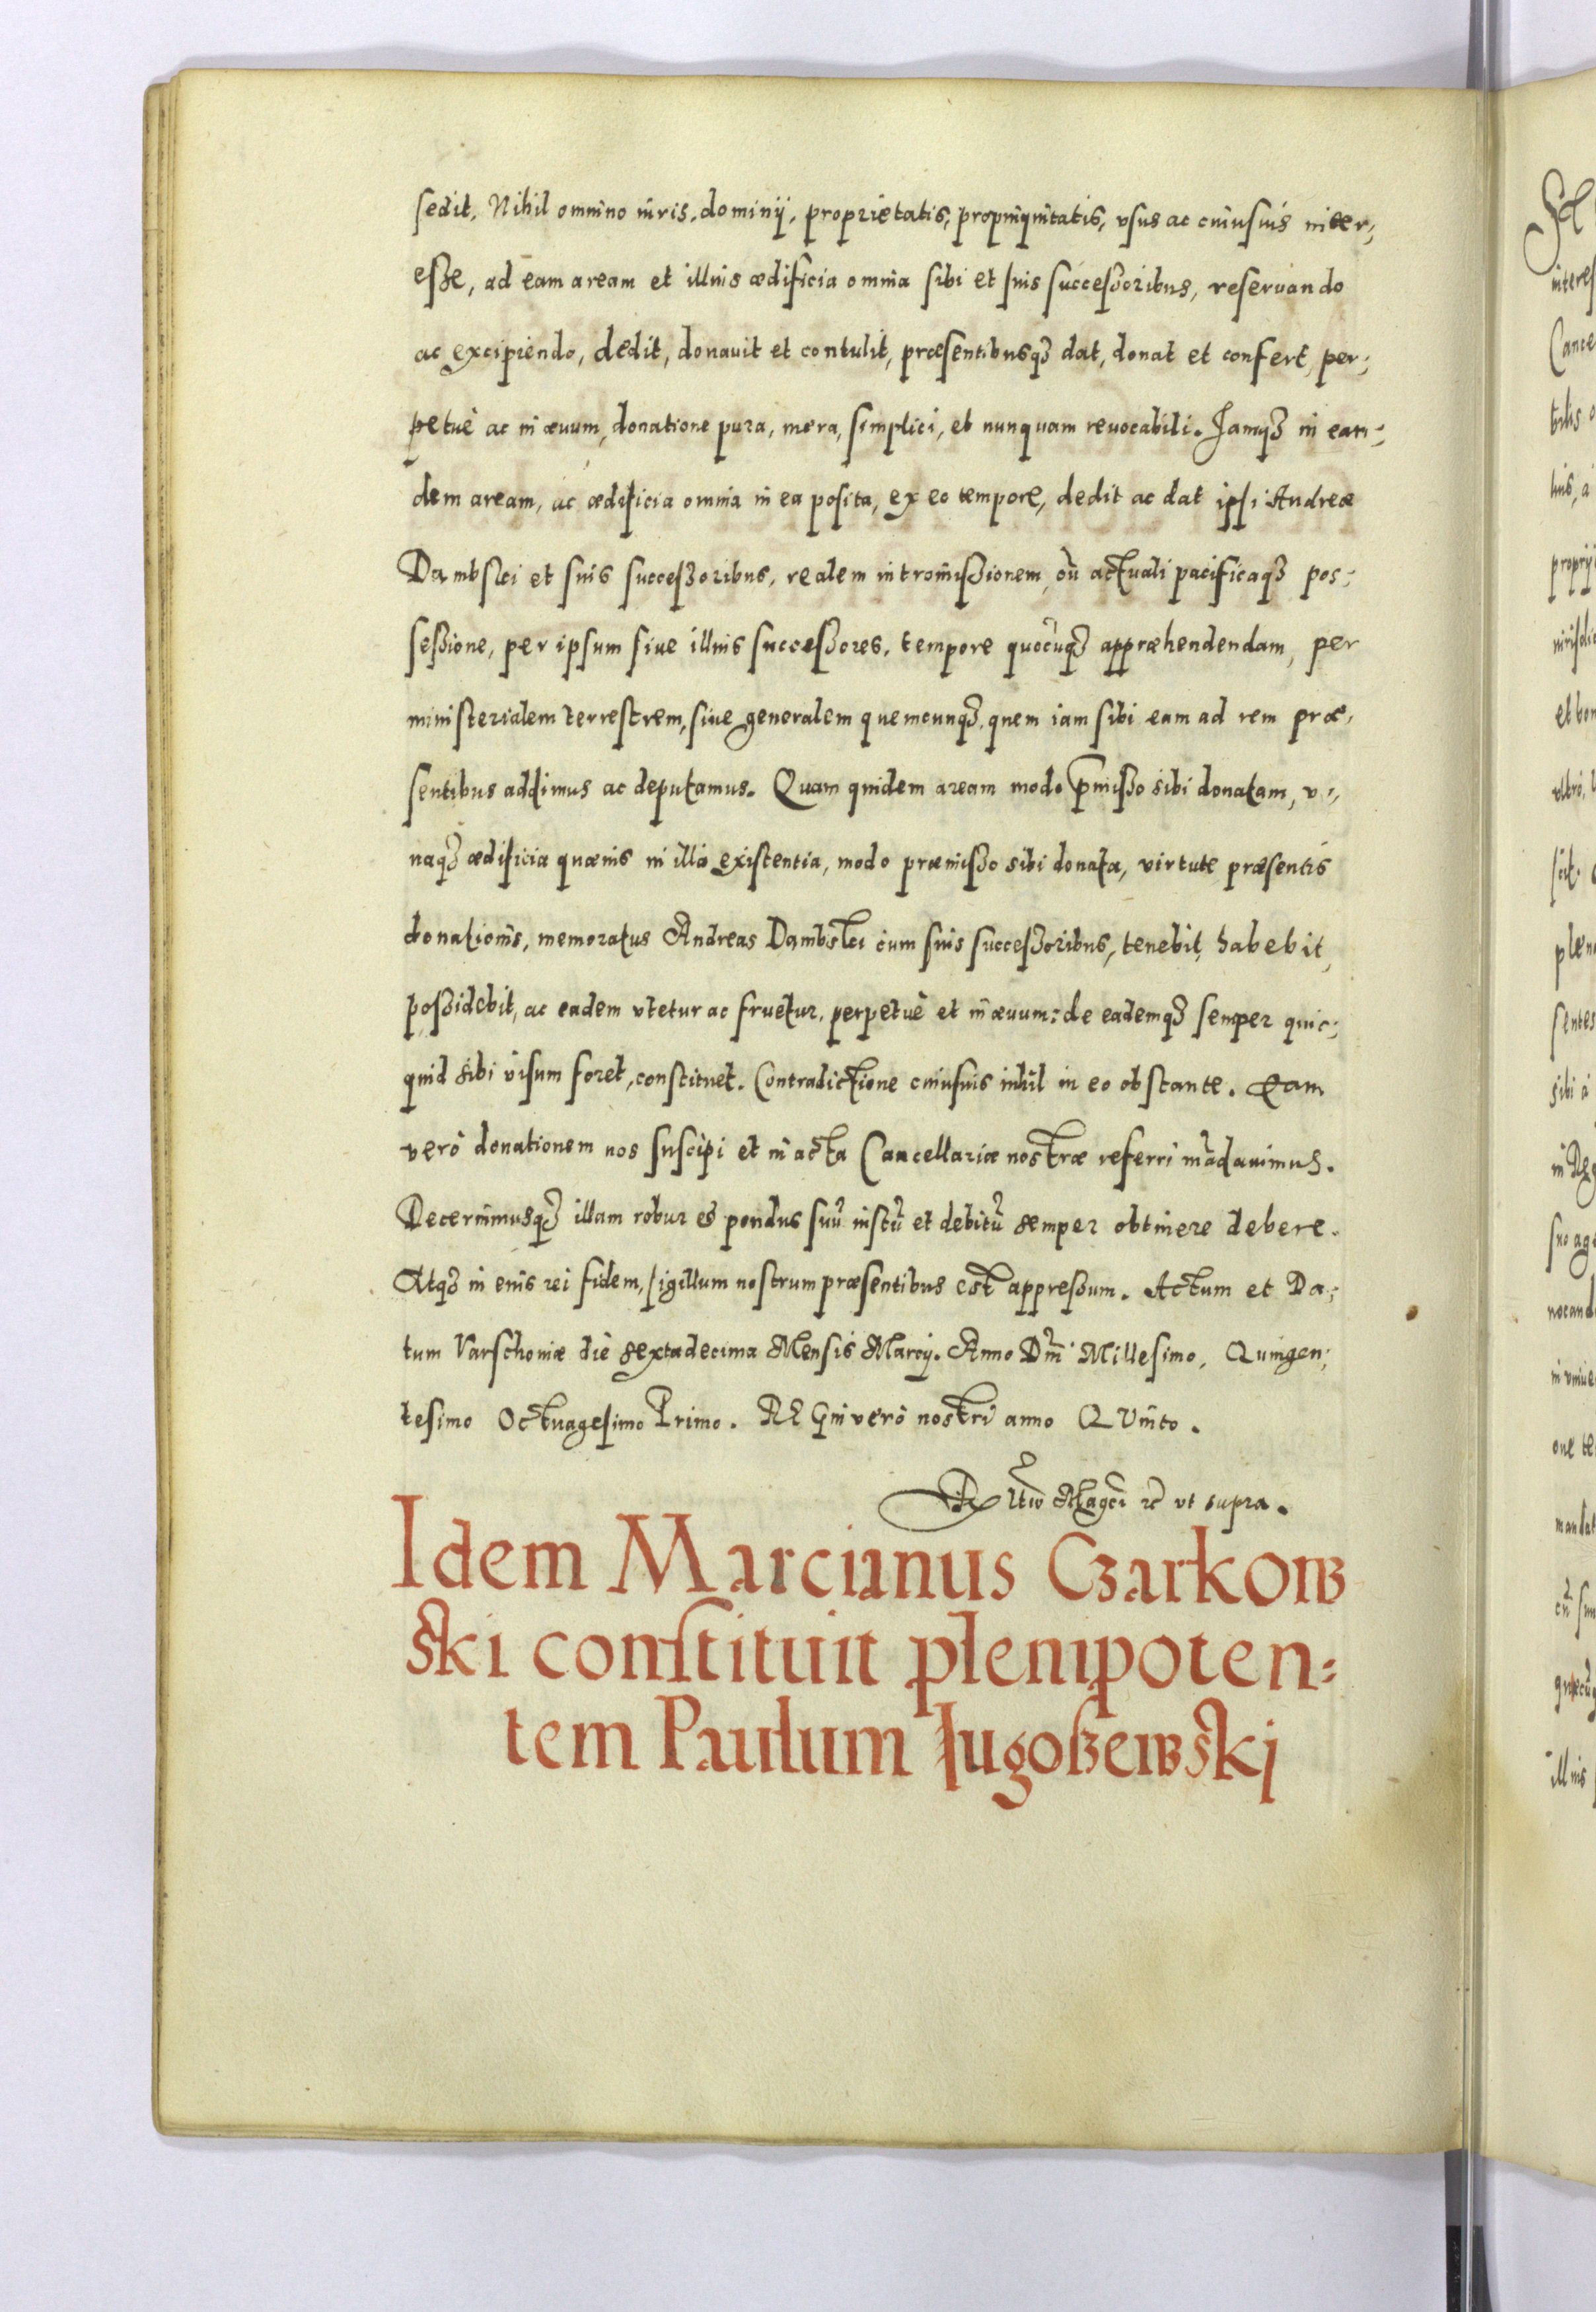 sedit, Nihil omnino iuris, dominij, proprietatis, propinquitatis, vsus ac cuiusuis inter;
eße, ad eam aream et illius ædificia omnia sibi et suis succeßoribus, reseruando
ac excipiendo, dedit, donauit et contulit, præsentibusqȝ dat, donat et confert, per;
petuè ac in æuum, donatione pura, mera, simplici, et nunquam reuocabili. Iamqȝ in ean;
dem aream, ac ædificia omnia in ea posita, ex eo tempore, dedit ac dat ipsi Andreæ
Dambski et suis succeßoribus, realem intromißionem, cū actuali pacificaqȝ pos;
seßione, per ipsum siue illius succeßores, tempore quocūqȝ appræhendendam, per
ministerialem terrestrem, siue generalem quemcunqȝ, quem iam sibi eam ad rem præ,
sentibus addimus ac deputamus. Quam quidem aream modo p̄mißo sibi donatam, v,,
naqȝ ædificia quæuis in illa existentia, modo præmißo sibi donata, virtute præsentis
donationis, memoratus Andreas Dambski cum suis succeßoribus, tenebit, habebit,
poßidebit, ac eadem vtetur ac fruetur, perpetuè et in æuum: de eademqȝ semper quic;
quid sibi visum foret, constituet. Contradictione cuiusuis nihil in eo obstante. Eam
verò donationem nos suscipi et in acta Cancellariæ nostræ referri mādauimus.
Decernimusqȝ illam robur et pondus suū iustū et debitū semper obtinere debere.
Atqȝ in eius rei fidem, sigillum nostrum præsentibus est appreßum. Actum et Da;
tum Varschouiæ die sextadecima Mensis Marcij. Anno Dn̄i Millesimo, Quingen;
tesimo Octuagesimo Primo. REGni verò nostri anno QVinto.
Rltio Magci rc vt supra.
Idem Marcianus Czarkow
ski constituit plenipoten=
tem Paulum Iugoßewski